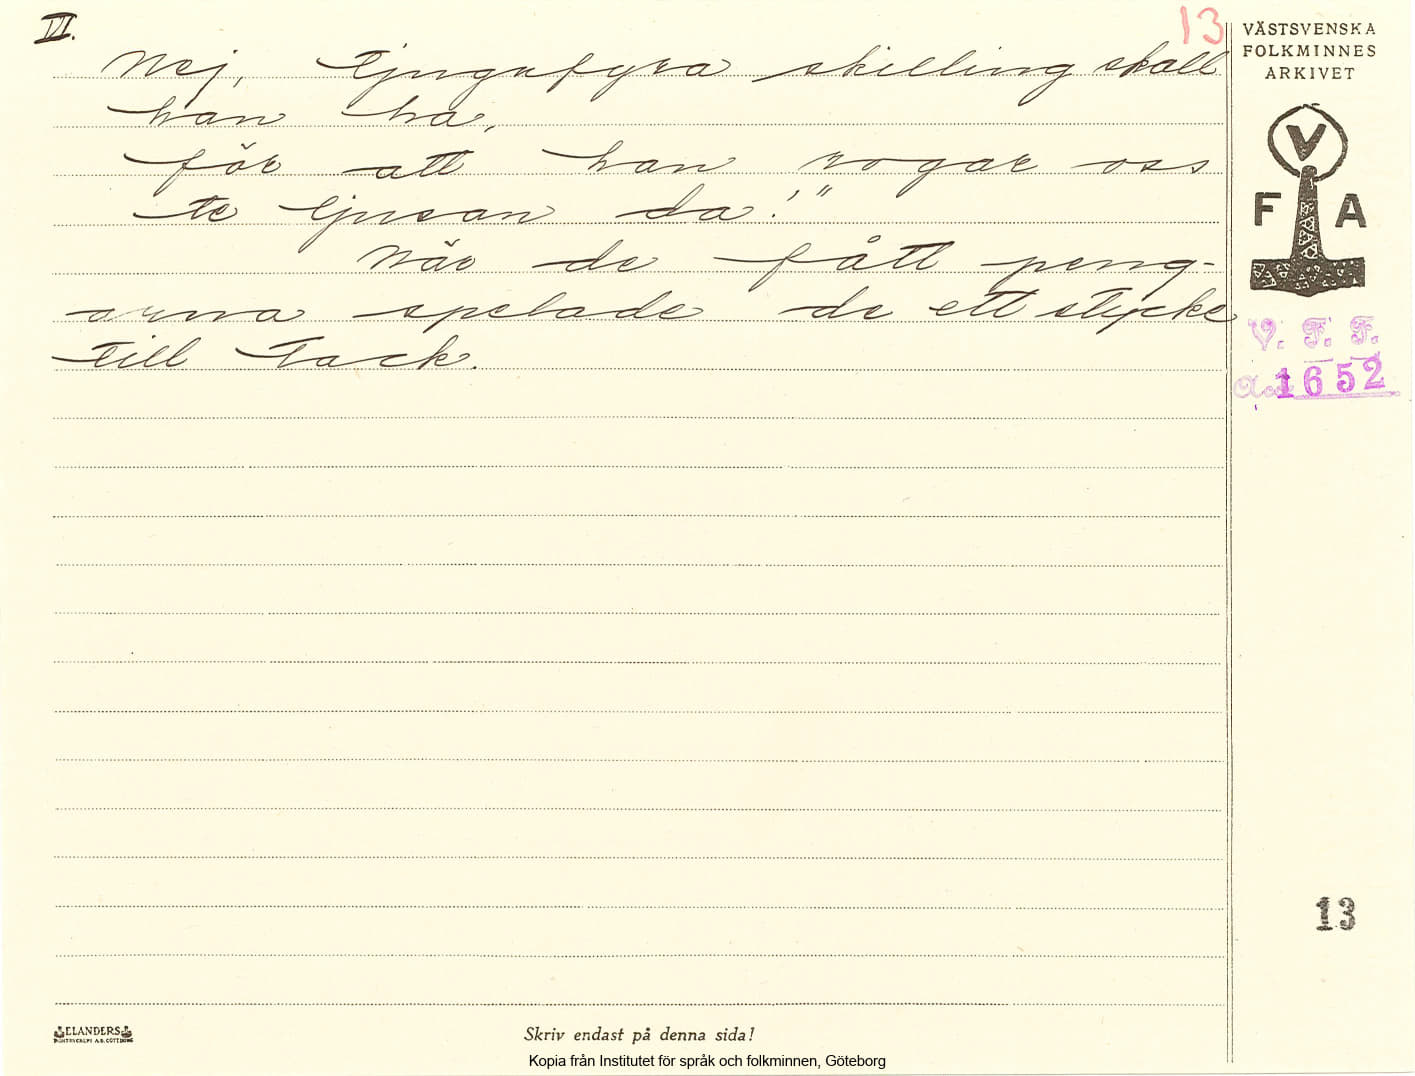 VI.
13
Nej, tjugufyra skilling skall
han ha,
för att han rogar oss
te ljusan da!"
När de fått peng-
arna spelade de ett stycke
till tack.
VÄSTSVENSKA
FOLKMINNES
ARKIVET
V
F A
V. F. F.
1652
13
ELANDERS
Skriv endast på denna sida!
Kopia från Institutet för språk och folkminnen, Göteborg